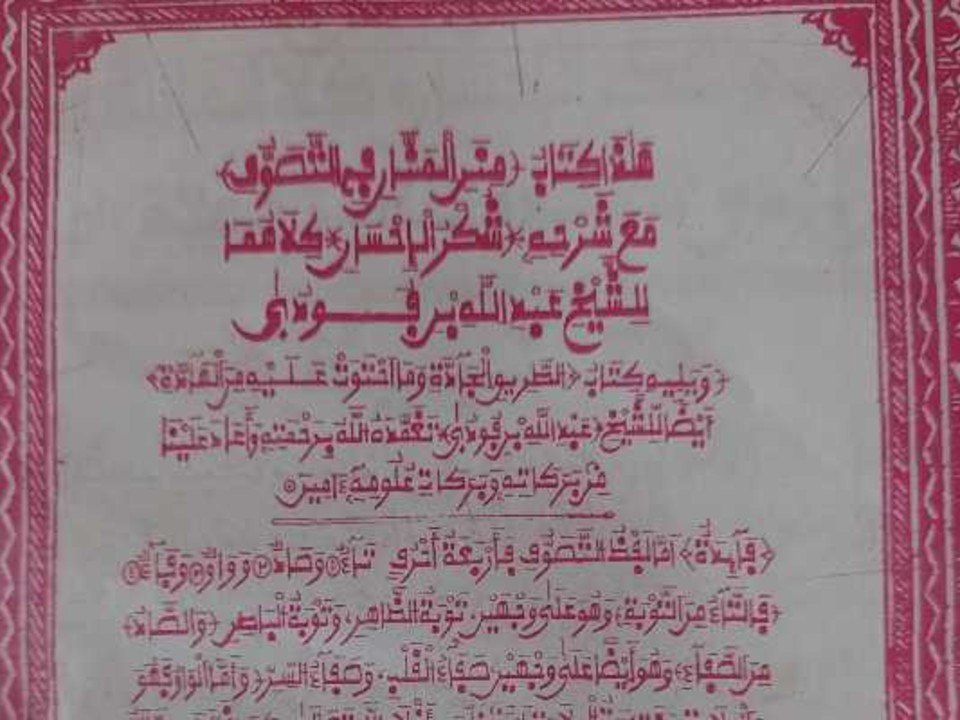 هَٰذَا كِتَابُ ﴿مِنَنِ الْمَنَّانِ فِي التَّصَوُّفِ﴾
مَعَ شَرْحِهِ * شُكْرُ الْإِحْسَانِ * كِلَاهُمَا
لِلشَّيْخِ عَبْدِ اللَّهِ بْنِ فُودِيِ
﴿وَيَلِيهِ كِتَابُ ﴿الطَّرِيقِ الْجَادَّةِ وَمَا احْتَوَتْ عَلَيْهِ مِنَ الْفَائِدَةِ﴾
أَيْضًا لِلشَّيْخِ ﴿عَبْدِ اللَّهِ بْنِ فُودِيِ﴾ تَغَمَّدَهُ اللَّهُ بِرَحْمَتِهِ وَأَعَادَ عَلَيْنَا
مِنْ بَرَكَاتِهِ وَبَرَكَاتِ عُلُومِهِ ءَامِينَ
﴿فَآئِدَةٌ﴾ أَمَّا لَفْظُ التَّصَوُّفِ فَأَرْبَعَةُ أَحْرُفٍ تَآءٌ ١ وَصَادٌ ٢ وَوَاوٌ ٣ وَفَآءٌ ٤
﴿فَالتَّآءُ مِنَ التَّوْبَةِ﴾ وَهُوَ عَلَىٰ وَجْهَيْنِ. تَوْبَةُ الظَّاهِرِ، وَتَوْبَةُ الْبَاطِنِ ﴿وَالصَّادُ﴾
مِنَ الصَّفَآءِ﴾ وَهُوَ أَيْضًا عَلَىٰ وَجْهَيْنِ صَفَآءُ الْقَلْبِ. وَصَفَآءُ السِّرِّ ﴿وَأَمَّا الْوَاوُ فَهُوَ